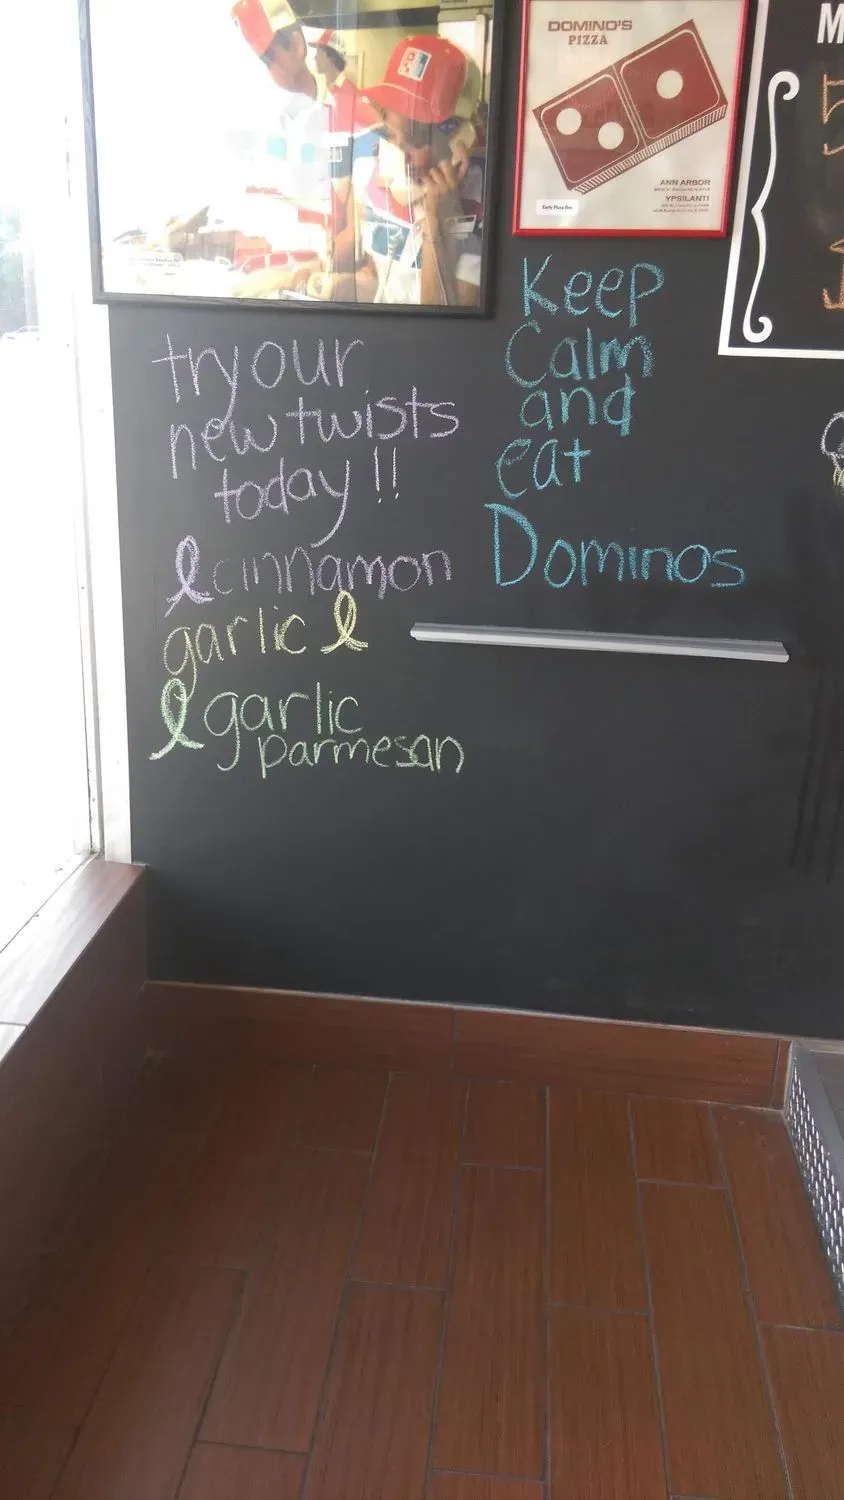 DOMINO'S
PIZZA
ANN ARBOR
YPSILANTI
Early Pizza Box
M
5
try our
new twists
today!!
cinnamon
garlic
garlic
parmesan
Keep
Calm
and
eat
Dominos